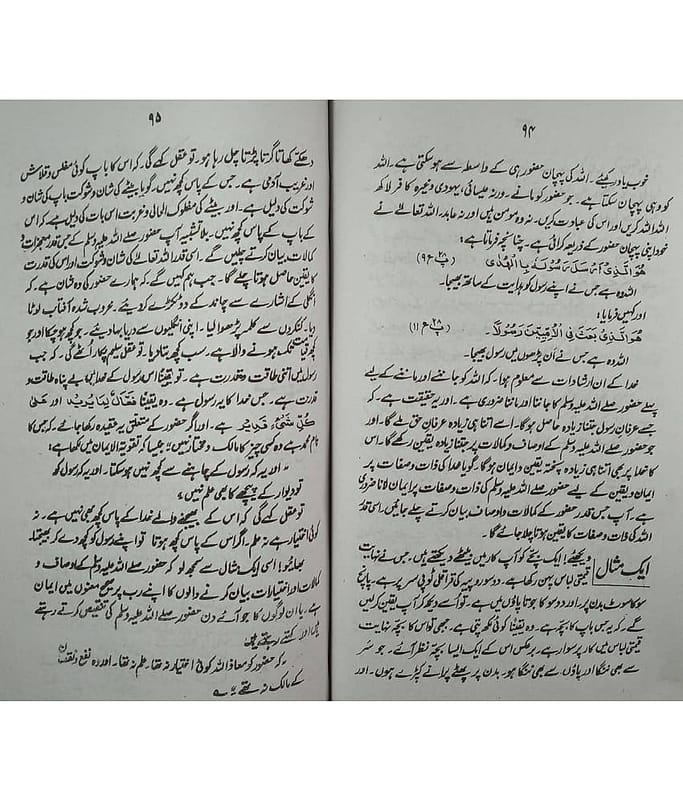 ۹۴
خوب یاد رکھئے۔ اللہ کی پہچان حضور ہی کے واسطہ سے ہو سکتی ہے۔ اللہ
کو وہی پہچان سکتا ہے۔ جو حضور کو مانے۔ ورنہ عیسائی، یہودی وغیرہ کافر لاکھ
اللہ اللہ کریں اور اس کی عبادت کریں۔ نہ وہ مومن ہیں اور نہ عابد۔ اللہ تعالےٰ نے
خود اپنی پہچان حضور کے ذریعہ کرائی ہے۔ چنانچہ فرماتا ہے:
هُوَ الَّذِیْ اَرْسَلَ رَسُوْلَهٗ بِالْهُدٰی (پ۲۸ ع۹)
اللہ وہ ہے جس نے اپنے رسول کو ہدایت کے ساتھ بھیجا۔
اور کہیں فرمایا:
هُوَ الَّذِیْ بَعَثَ فِی الْاُمِّیّٖنَ رَسُوْلًا۔ (پ۲۸ ع۱۱)
اللہ وہ ہے جس نے اَن پڑھوں میں رسول بھیجا۔
خدا کے ان ارشادات سے معلوم ہوا۔ کہ اللہ کو جاننے اور ماننے کے لیے
پہلے حضور صلے اللہ علیہ وسلم کا جاننا اور ماننا ضروری ہے۔ اور یہ حقیقت ہے۔ کہ
جسے عرفانِ رسول جتنا زیادہ حاصل ہوگا۔ اسے اتنا ہی زیادہ عرفانِ حق ملے گا۔ اور
جو حضور صلے اللہ علیہ وسلم کے اوصاف و کمالات پر جتنا زیادہ یقین رکھے گا۔ اس
کا خدا پر بھی اتنا ہی زیادہ پختہ یقین و ایمان ہوگا۔ گویا خدا کی ذات و صفات پر
ایمان و یقین کے لیے حضور صلے اللہ علیہ وسلم کی ذات و صفات پر ایمان لانا ضروری
ہے۔ آپ جس قدر حضور کے کمالات و اوصاف بیان کرتے چلے جائیں۔ اسی قدر
اللہ کی ذات و صفات کا یقین ہوتا چلا جائے گا۔
ایک مثال دیکھئے! ایک بچے کو آپ کار میں بیٹھے دیکھتے ہیں۔ جس نے نہایت
قیمتی لباس پہن رکھا ہے۔ دو سو روپیہ کی قراقلی ٹوپی سر پر ہے۔ پانچ
سو کا سوٹ بدن پر۔ اور دو سو کا جوتا پاؤں میں ہے۔ تو اسے دیکھ کر آپ یقین کر لیں
گے۔ کہ یہ جس باپ کا بچہ ہے۔ وہ یقیناً کوئی لکھ پتی ہے۔ جبھی تو اس کا بچہ نہایت
قیمتی لباس میں کار پر سوار ہے۔ برعکس اس کے ایک ایسا بچہ نظر آئے۔ جو سر
سے بھی ننگا اور پاؤں سے بھی ننگا ہو۔ بدن پر پھٹے پرانے کپڑے ہوں۔ اور
۹۵
دھکے کھاتا گرتا پڑتا چل رہا ہو۔ تو عقل کہے گی۔ کہ اس کا باپ کوئی مفلس و قلاش
اور غریب آدمی ہے۔ جس کے پاس کچھ نہیں۔ گویا بیٹے کی شان و شوکت باپ کی شان و
شوکت کی دلیل ہے۔ اور بیٹے کی مفلوک الحالی و غربت اس بات کی دلیل ہے کہ اس
کے باپ کے پاس کچھ نہیں۔ بلا تشبیہ آپ حضور صلے اللہ علیہ وسلم کے جس قدر معجزات و
کمالات بیان کرتے چلیں گے۔ اسی قدر اللہ تعالےٰ کی شان و شوکت اور اس کی قدرت
کا یقین حاصل ہوتا چلے گا۔ جب ہم کہیں گے۔ کہ ہمارے حضور کی وہ شان ہے۔ کہ
انگلی کے اشارے سے چاند کے دو ٹکڑے کر دیئے۔ غروب شدہ آفتاب لوٹا
دیا۔ کنکروں سے کلمہ پڑھوا لیا۔ اپنی انگلیوں سے دریا بہا دیئے۔ جو کچھ ہو چکا اور جو
کچھ قیامت تک ہونے والا ہے۔ سب کچھ بتا دیا۔ تو عقلِ سلیم پکار اُٹھے گی۔ کہ جب
رسول میں اتنی طاقت و قدرت ہے۔ تو یقیناً اس رسول کے خدا میں بے پناہ طاقت و
قدرت ہے۔ جس خدا کا یہ رسول ہے۔ وہ یقیناً فَعَّالٌ لِّمَا یُرِیْدُ اور عَلٰی
کُلِّ شَیْءٍ قَدِیْرٌ ہے۔ اور اگر حضور کے متعلق یہ عقیدہ رکھا جائے۔ کہ جس کا
نام محمد ہے وہ کسی چیز کا مالک و مختار نہیں" جیسا کہ تقویۃ الایمان میں لکھا ہے:
"اور یہ کہ رسول کے چاہنے سے کچھ نہیں ہو سکتا۔ اور یہ کہ رسول کو
تو دیوار کے پیچھے کا بھی علم نہیں"
تو عقل کہے گی کہ اس کے بھیجنے والے خدا کے پاس کچھ بھی نہیں ہے۔ نہ
کوئی اختیار ہے نہ علم۔ اگر اس کے پاس کچھ ہوتا تو اپنے رسول کو کچھ دے کر بھیجتا۔
بھائیو! اسی ایک مثال سے سمجھ لو کہ حضور صلے اللہ علیہ وسلم کے اوصاف و
کمالات اور اختیارات بیان کرنے والوں کا اپنے رب پر صحیح معنوں میں ایمان
ہے۔ یا ان لوگوں کا جو آئے دن حضور صلے اللہ علیہ وسلم کی تنقیص کرتے رہتے
ہیں اور کہتے رہتے ہیں
کہ حضور کو معاذ اللہ کوئی اختیار نہ تھا۔ علم نہ تھا۔ اور وہ نفع و نقصان
کے مالک نہ تھے"